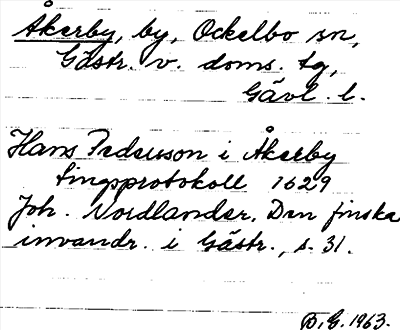 Åkerby, by, Ockelbo sn,
Gästr. v. doms. tg,
Gävl. l.
Hans Pederson i Åkerby
tingsprotokoll 1629
Joh. Nordlander. Den finska
invandr. i Gästr., s. 31.
B. G. 1963.